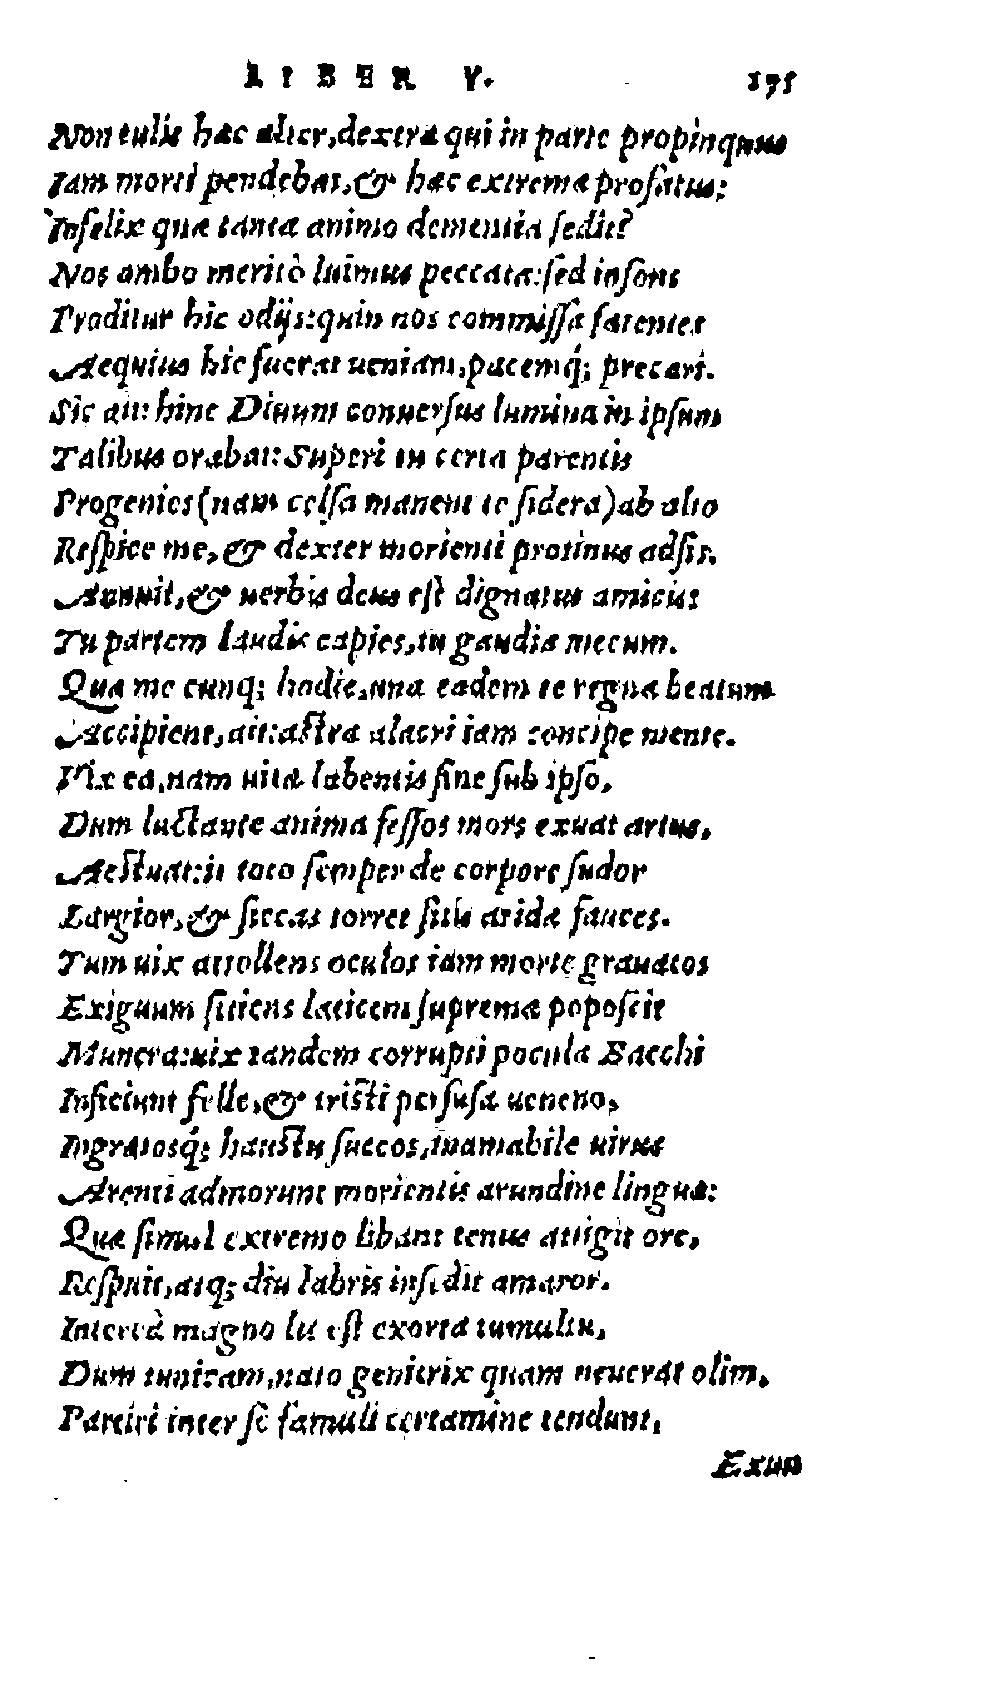 LIBER V. 175
Non tulit hæc alter, dextra qui in parte propinquus
Iam morti pendebat, & hæc extrema profatus:
Infelix quæ tanta animo dementia sedit?
Nos ambo meritò luimus peccata: sed insons
Proditur hic odijs: quin nos commissa fatentes
Aequius hic fuerat ueniam, pacemq́; precari.
Sic ait: hinc Diuum conuersus lumina in ipsum
Talibus orabat: Superi tu certa parentis
Progenies (nam celsa manent te sidera) ab alto
Respice me, & dexter morienti protinus adsis.
Annuit, & uerbis deus est dignatus amicis:
Tu partem laudis capies, tu gaudia mecum.
Quæ me cunq; hodie, una eadem te regna beatum
Accipient, ait: astra alacri iam concipe mente.
Vix ea, nam uitæ labentis fine sub ipso,
Dum luctante anima fessos mors exuat artus,
Aestuat: it toto semper de corpore sudor
Largior, & siccas torret sitis arida fauces.
Tum uix attollens oculos iam morte grauatos
Exiguum sitiens laticem suprema poposcit
Munera: uix tandem corrupti pocula Bacchi
Inficiunt felle, & tristi perfusa ueneno,
Ingratosq́; haustu succos, inamabile uirus
Arenti admorunt morientis arundine linguæ:
Quæ simul extremo libans tenus attigit ore,
Respuit, atq; diu labris insedit amaror.
Intereà magno lis est exorta tumultu,
Dum tunicam, nato genitrix quam neuerat olim,
Partiri inter se famuli certamine tendunt,
Exuu